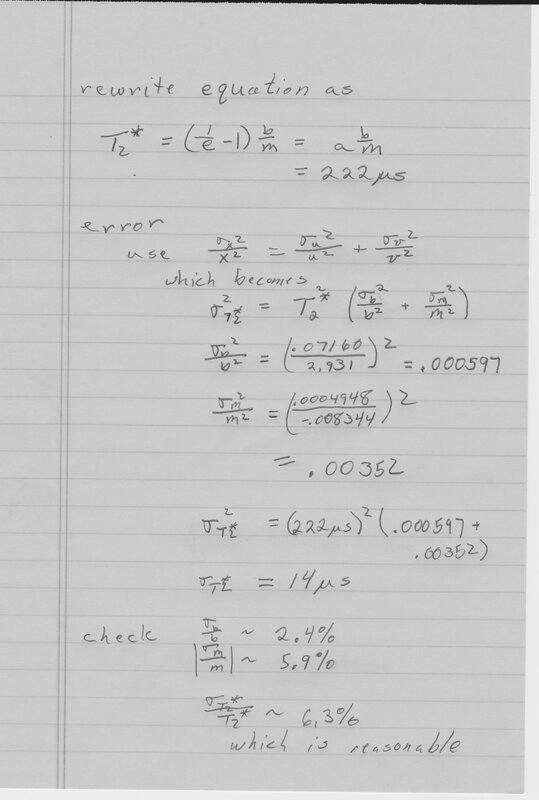 rewrite equation as
T₂* = (1/e - 1) b/m = a b/m
= 222 μs
error
use σx²/x² = σu²/u² + σv²/v²
which becomes
σ²T₂* = T₂*² (σb²/b² + σm²/m²)
σb²/b² = (.07160/2.931)² = .000597
σm²/m² = (.0004948/-.008344)²
= .00352
σ²T₂* = (222 μs)² (.000597 +
.00352)
σT₂* = 14 μs
check σb/b ~ 2.4%
|σm/m| ~ 5.9%
σT₂*/T₂* ~ 6.3%
which is reasonable